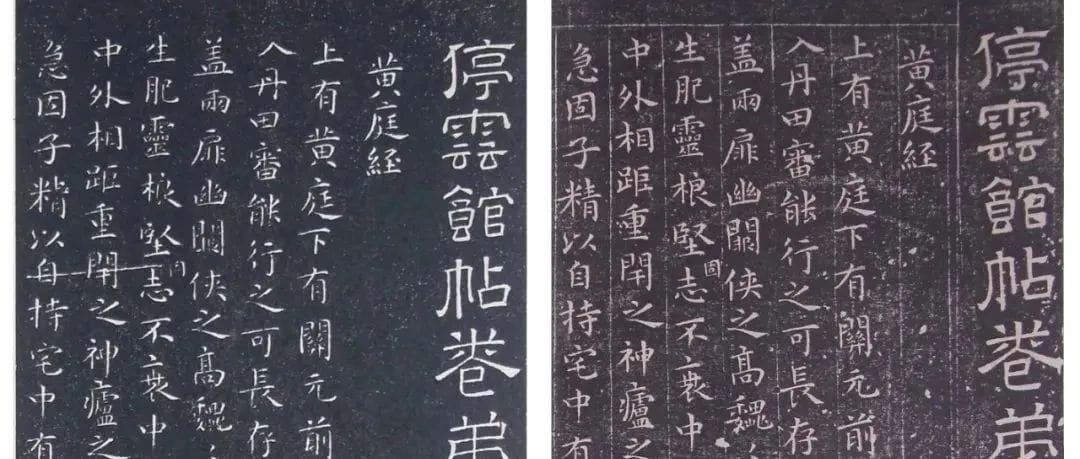 停雲館帖卷弟
黄庭經
上有黄庭下有關元前
入丹田審能行之可長存
盖兩扉幽闕侠之高巍丶
生肥靈根堅固志不衰中
中外相距重閇之神廬之
急固子精以自持宅中有
停雲館帖卷弟
黄庭經
上有黄庭下有關元前
入丹田審能行之可長存
盖兩扉幽闕侠之高巍丶
生肥靈根堅固志不衰中
中外相距重閇之神廬之
急固子精以自持宅中有